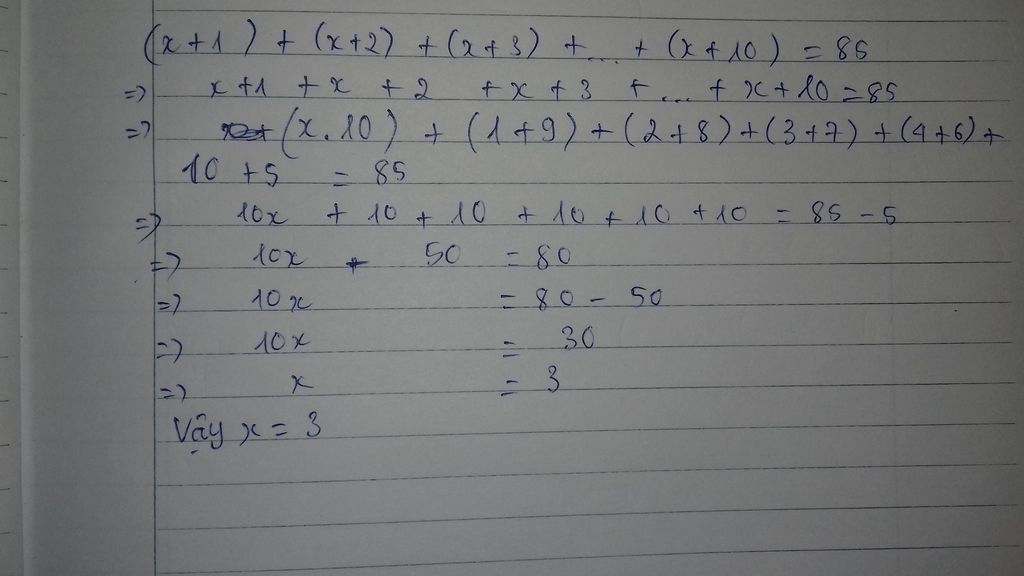 (x+1) + (x+2) + (x+3) + ... + (x+10) = 85
=> x+1 + x + 2 + x + 3 + ... + x+10 = 85
=> (x.10) + (1+9) + (2+8) + (3+7) + (4+6) +
10 + 5 = 85
=> 10x + 10 + 10 + 10 + 10 + 10 = 85 - 5
=> 10x + 50 = 80
=> 10x = 80 - 50
=> 10x = 30
=> x = 3
Vậy x = 3